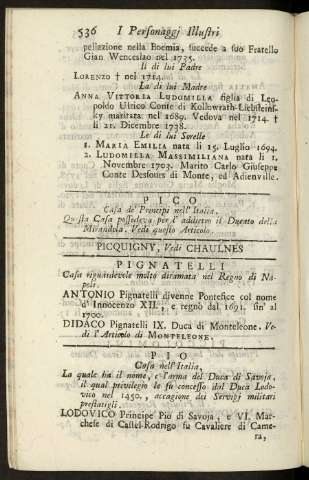 536 I Personaggj Illustri
pellazione nella Boemia, succede a suo Fratello
Gian Wenceslao nel 1735.
Il di lui Padre
LORENZO † nel 1714.
La di lui Madre
ANNA VITTORIA LUDOMILIA figlia di Leo-
poldo Ulrico Conte di Kollowrath-Liebsteins-
ky maritata nel 1689. Vedova nel 1714. †
li 21. Dicembre 1738.
Le di lui Sorelle
1. MARIA EMILIA nata li 15. Luglio 1694.
2. LUDOMILLA MASSIMILIANA nata li 1.
Novembre 1702. Marito Carlo Giuseppe
Conte Desfours di Monte, ed Adienville.
PICO
Casa de' Principi nell'Italia.
Questa Casa possedeva per l'addietro il Ducato della
Mirandola. Vedi questo Articolo.
PICQUIGNY, Vedi CHAULNES
PIGNATELLI
Casa riguardevole molto diramata nel Regno di Na-
poli.
ANTONIO Pignatelli divenne Pontefice col nome
d'Innocenzo XII., e regnò dal 1691. sin' al
1700.
DIDACO Pignatelli IX. Duca di Monteleone. Ve-
di l'Articolo di MONTELEONE.
PIO
Casa nell'Italia,
La quale ha il nome, e l'arma del Duca di Savoja,
il qual privilegio le fu concesso dal Duca Lodo-
vico nel 1450., accagione dei Servigj militari
prestatigli.
LODOVICO Principe Pio di Savoja, e VI. Mar-
chese di Castel-Rodrigo fu Cavaliere di Came-
ra,